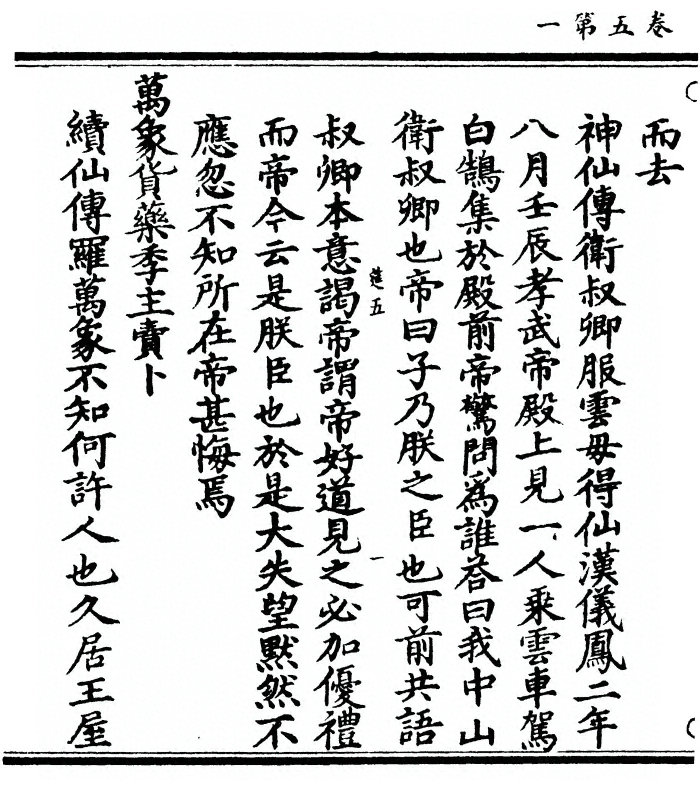 卷五第一
而去
神仙傳衛叔卿服雲母得仙漢儀鳳二年
八月壬辰孝武帝殿上見一人乘雲車駕
白鵠集於殿前帝驚問爲誰荅曰我中山
衛叔卿也帝曰子乃朕之臣也可前共語
叔卿本意謁帝謂帝好道見之必加優禮
而帝今云是朕臣也於是大失望默然不
應忽不知所在帝甚悔焉
萬象貨藥季主賣卜
續仙傳羅萬象不知何許人也久居王屋